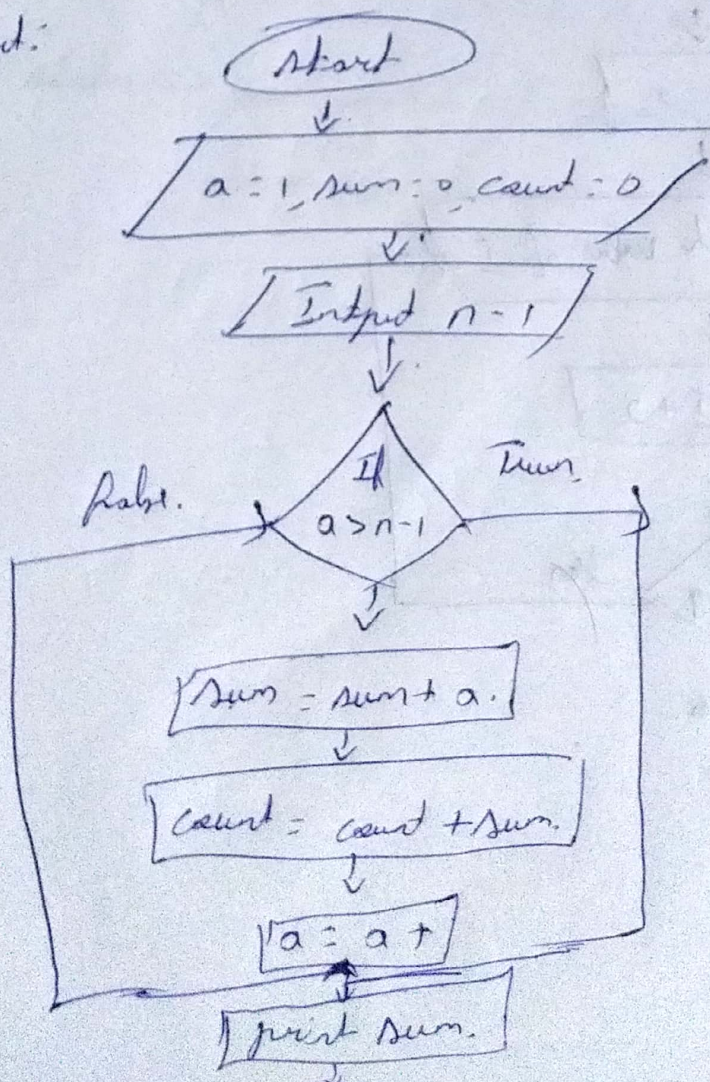 start
a = 1, sum = 0, count = 0
Intput n - 1
If
a > n - 1
sum = sum + a.
count = count + sum.
a = a +
print sum.